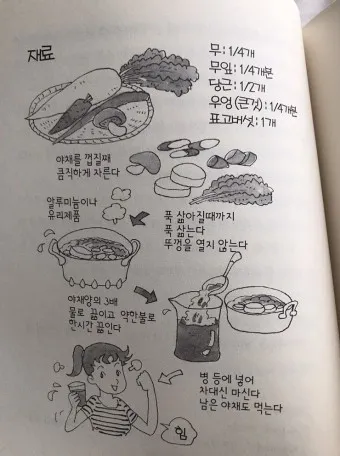 재료
무: 1/4개
무잎: 1/4개분
당근: 1/2개
우엉(큰것): 1/4개분
표고버섯: 1개
야채를 껍질째
큼직하게 자른다
알루미늄이나
유리제품
푹 삶아질때까지
푹 삶는다
뚜껑을 열지 않는다
야채양의 3배
물로 끓이고 약한불로
한시간 끓인다
병 등에 넣어
차대신 마신다
남은 야채도 먹는다
힘